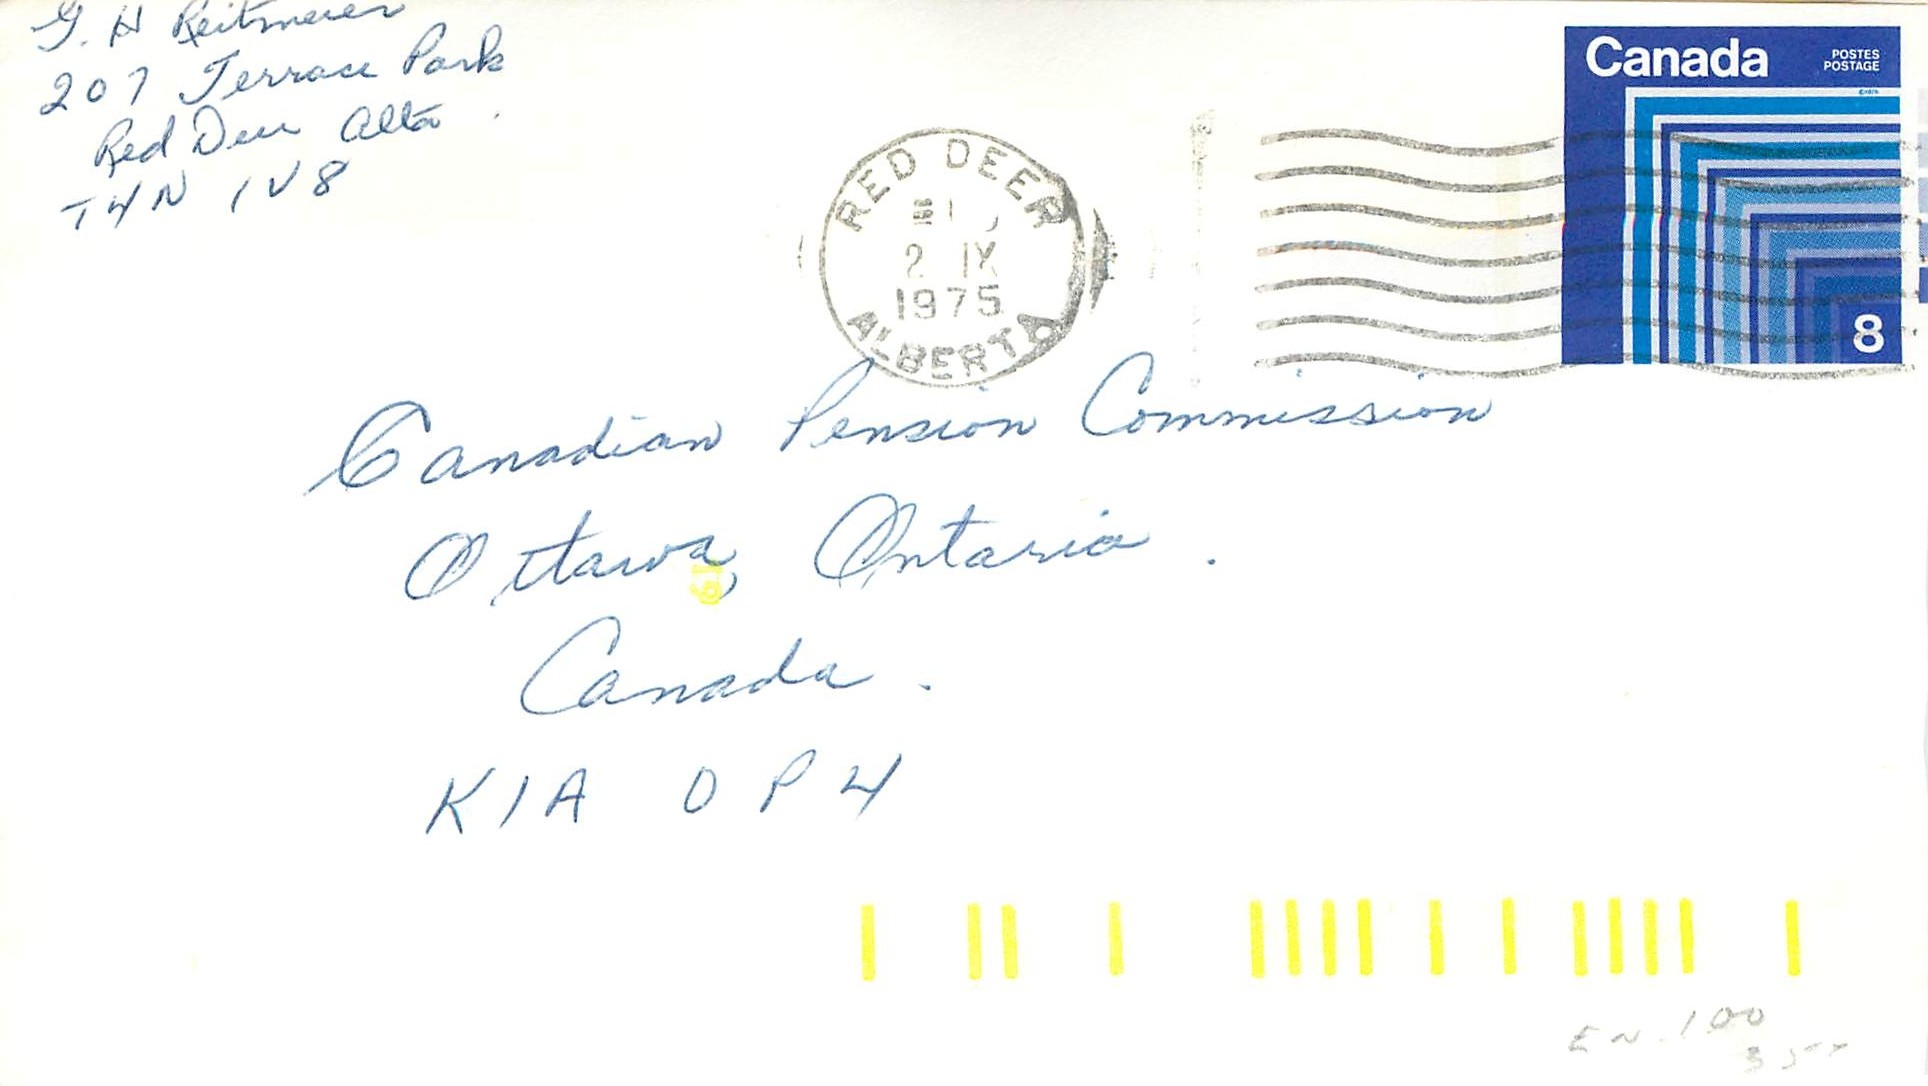 G. H Reitmeier
207 Terrace Park
Red Deer Alta.
T4N 1V8
Canada
POSTES
POSTAGE
8
RED DEER
2 IX
1975
ALBERTA
Canadian Pension Commission
Ottawa, Ontario.
Canada.
K1A 0P4
19
EN. 100